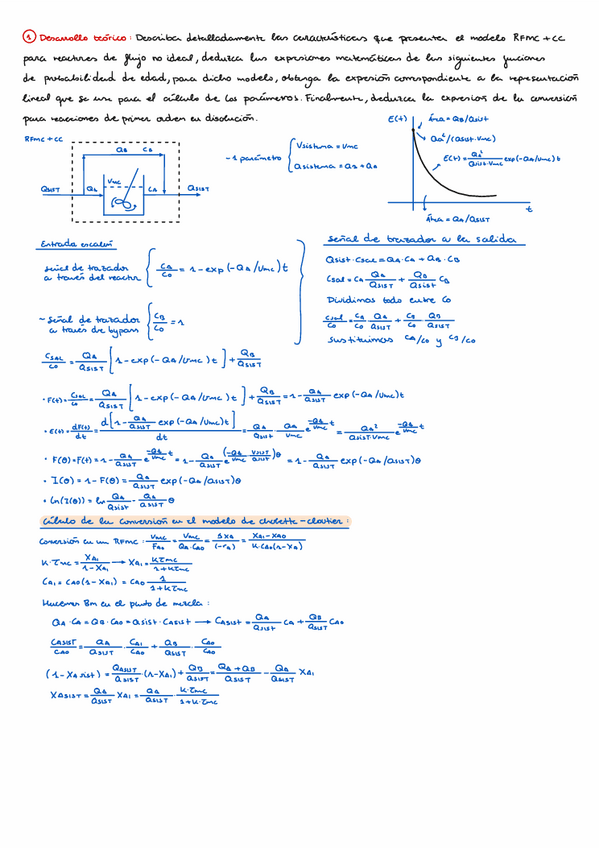 ① Desarrollo teórico: Describa detalladamente las características que presenta el modelo RFMC + CC
para reactores de flujo no ideal, deduzca las expresiones matemáticas de las siguientes funciones
de probabilidad de edad, para dicho modelo, obtenga la expresión correspondiente a la representación
lineal que se use para el cálculo de los parámetros. Finalmente, deduzca la expresión de la conversión
para reacciones de primer orden en disolución.
RFMC + CC
QB CB
QSIST QA VMC CA QSIST
~ 1 parámetro { Vsistema = VMC
Qsistema = QB + QA
E(t)
Área = QB/QSIST
QA²/(QSIST·VMC)
E(t) = QA²/QSIST·VMC exp(-QA/VMC)t
t
Área = QA/QSIST
Entrada escalón
Señal de trazador a través del reactor { CA/C0 = 1 - exp(-QA/VMC)t
~ Señal de trazador a través de bypass { CB/C0 = 1
Señal de trazador a la salida
QSIST·CSAL = QA·CA + QB·CB
CSAL = CA QA/QSIST + QB/QSIST CB
Dividimos todo entre C0
CSAL/C0 = CA/C0 QA/QSIST + CB/C0 QB/QSIST
Sustituimos CA/C0 y CB/C0
CSAL/C0 = QA/QSIST [1 - exp(-QA/VMC)t] + QB/QSIST
• F(t) = CSAL/C0 = QA/QSIST [1 - exp(-QA/VMC)t] + QB/QSIST = 1 - QA/QSIST exp(-QA/VMC)t
• E(t) = dF(t)/dt = d[1 - QA/QSIST exp(-QA/VMC)t]/dt = QA/QSIST QA/VMC e^(-QA/VMC t) = QA²/QSIST·VMC e^(-QA/VMC t)
• F(θ) = F(t) = 1 - QA/QSIST e^(-QA/VMC t) = 1 - QA/QSIST e^(-QA/VMC · VSIST/QSIST)θ = 1 - QA/QSIST exp(-QA/QSIST)θ
• I(θ) = 1 - F(θ) = QA/QSIST exp(-QA/QSIST)θ
• ln(I(θ)) = ln QA/QSIST - QA/QSIST θ
Cálculo de la conversión en el modelo de cholette-cloutier:
Conversión en un RFMC: VMC/FA0 = VMC/QA·CA0 = ΔXA/(-rA) = XA1 - XA0/K·CA0(1-XA)
K·τMC = XA1/1-XA1 → XA1 = KτMC/1+KτMC
CA1 = CA0(1-XA1) = CA0 1/1+KτMC
Hacemos Bm en el punto de mezcla:
QA·CA = QB·CA0 = QSIST·CASIST → CASIST = QA/QSIST CA + QB/QSIST CA0
CASIST/CA0 = QA/QSIST · CA1/CA0 + QB/QSIST · CA0/CA0
(1-XASIST) = QASIST/QASIST·(1-XA1) + QB/QSIST = QA+QB/QSIST - QA/QSIST XA1
XASIST = QA/QSIST XA1 = QA/QSIST · K·τMC/1+K·τMC